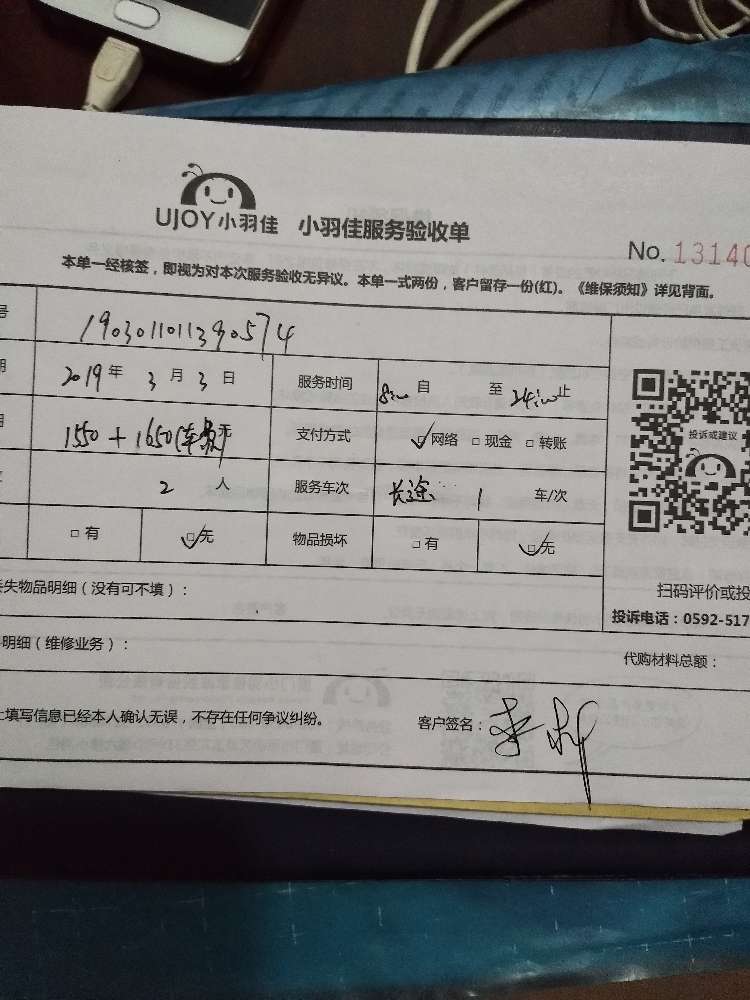 UJOY小羽佳 小羽佳服务验收单
No. 13140
本单一经核签，即视为对本次服务验收无异议。本单一式两份，客户留存一份(红)。《维保须知》详见背面。
号
期 2019年 3月3日 服务时间 自 至 止
1550 + 1650 支付方式 ☑网络 □现金 □转账
2人 服务车次 长途 1 车/次
□有 ☑无 物品损坏 □有 ☑无
投诉或建议
丢失物品明细（没有可不填）：
扫码评价或投
投诉电话：0592-517
明细（维修业务）：
代购材料总额：
上填写信息已经本人确认无误，不存在任何争议纠纷。
客户签名：